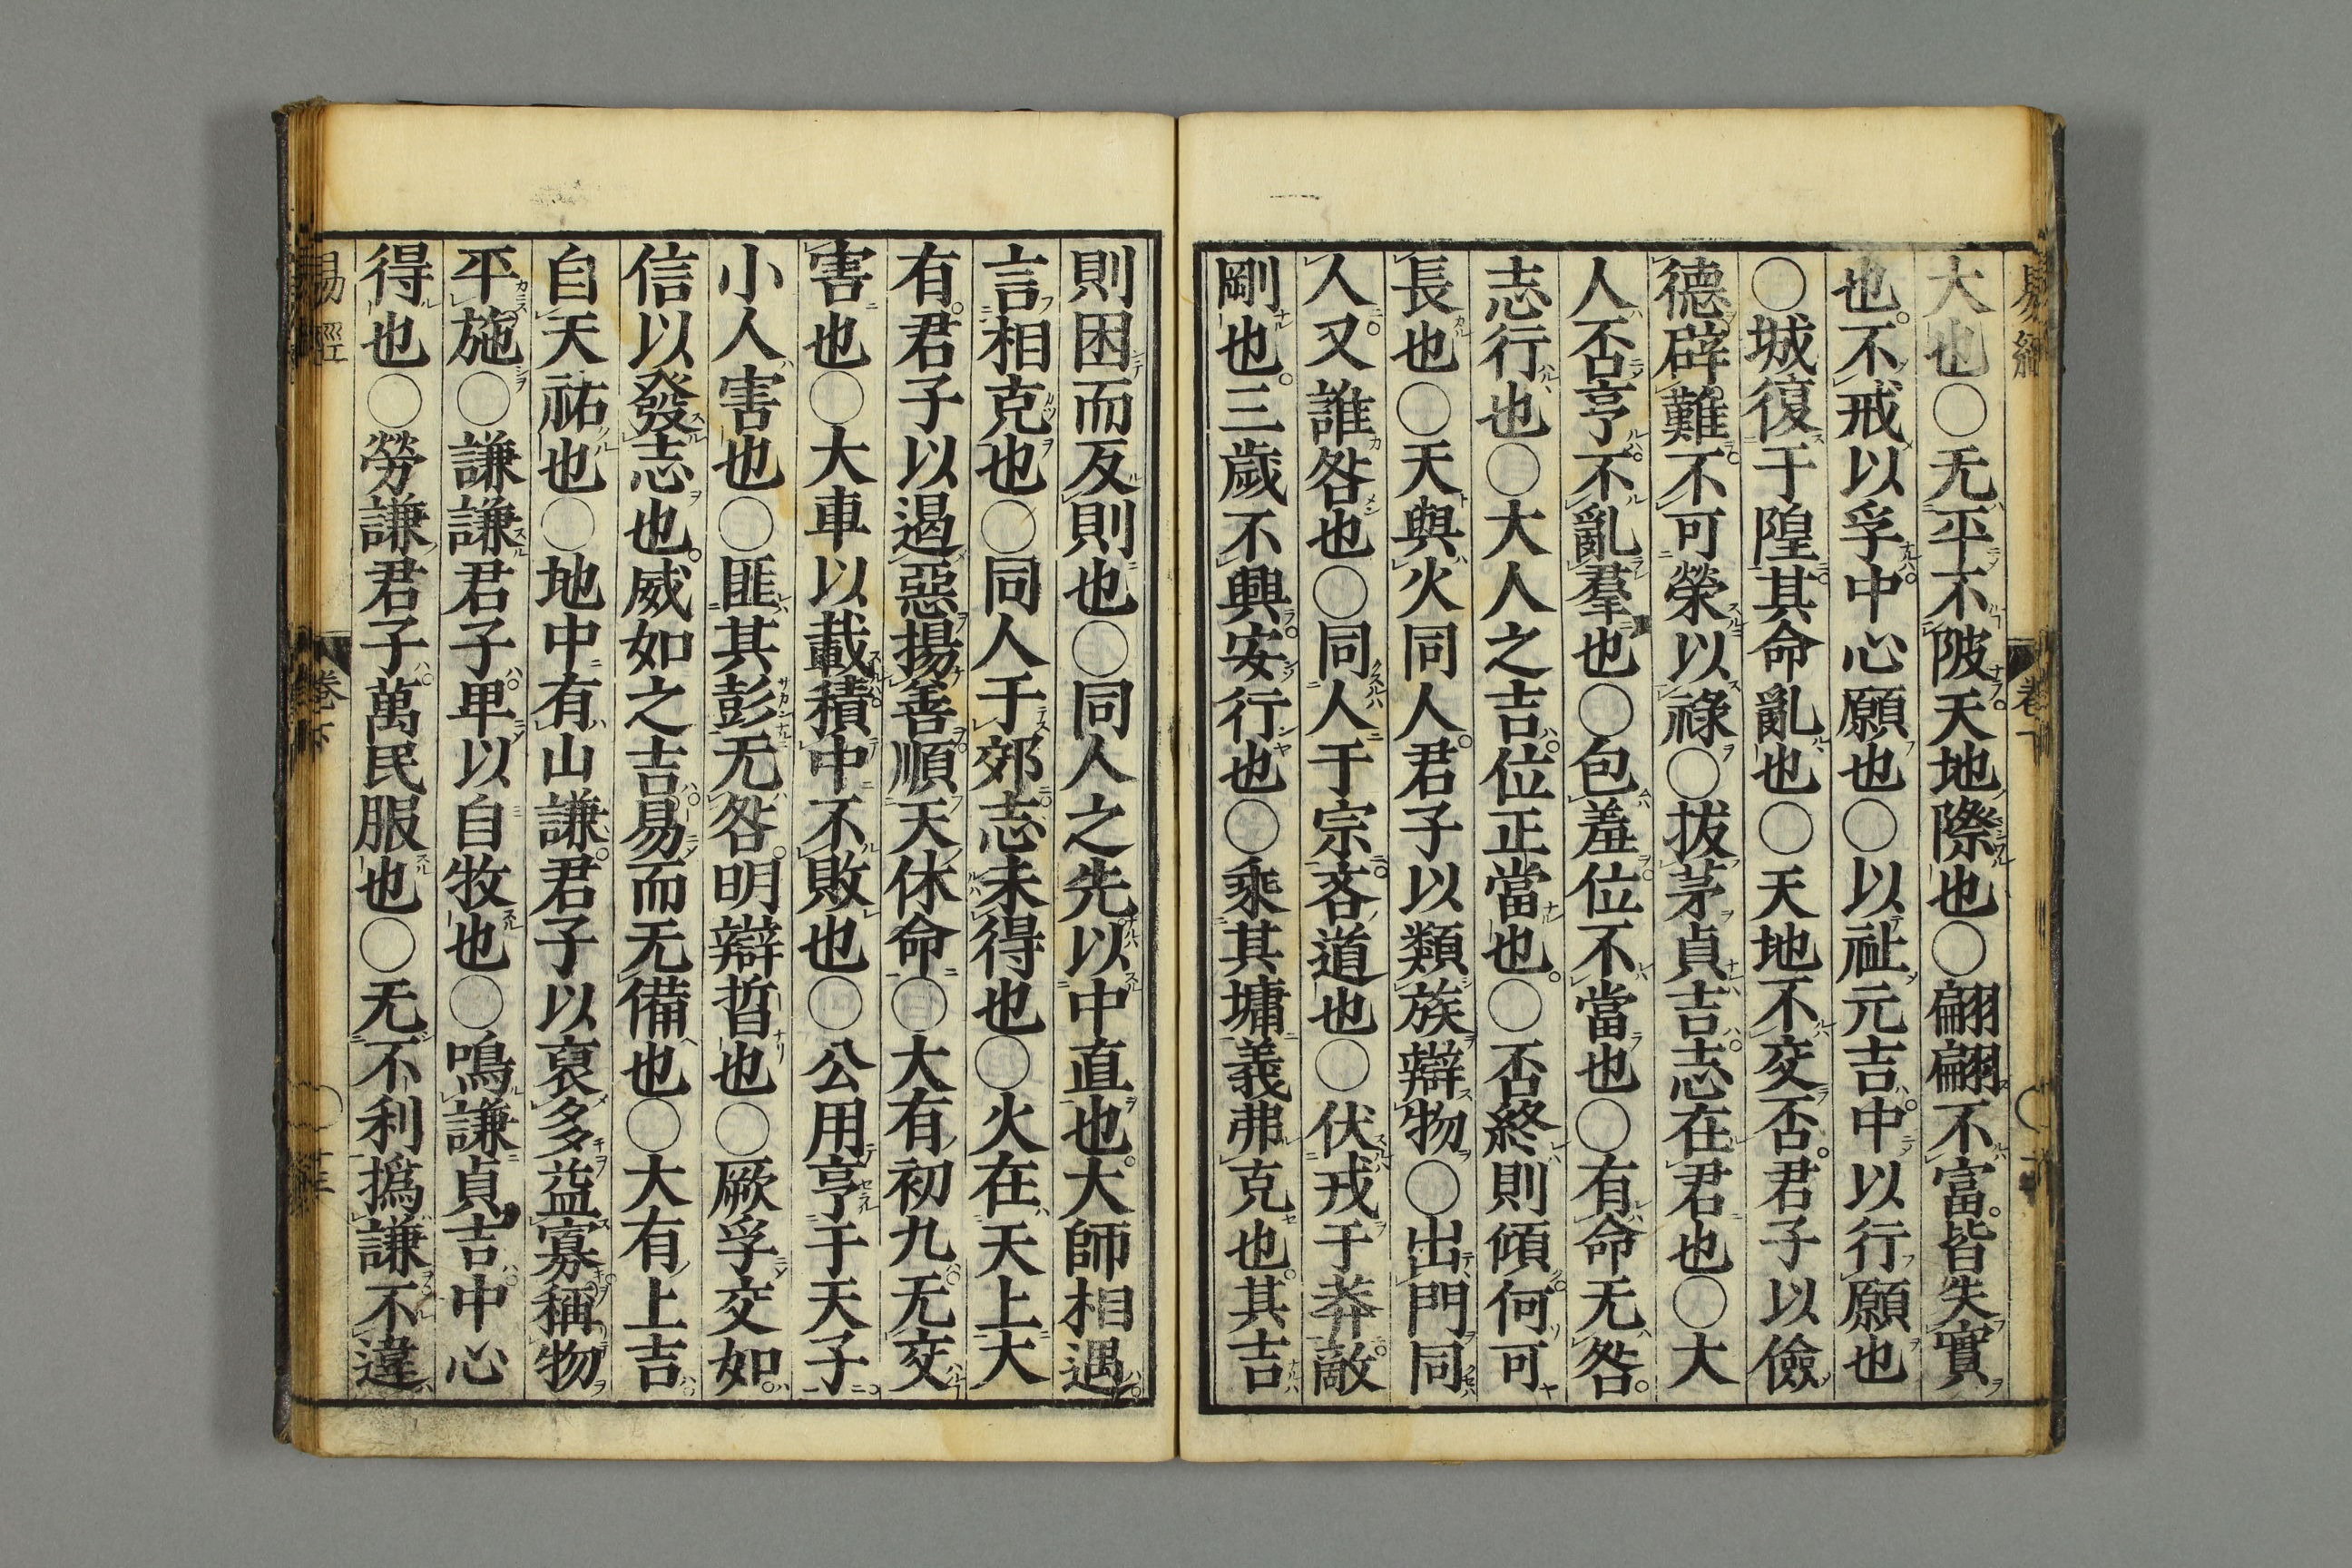 易經 卷下
大也○无平不陂天地際也○翩翩不富皆失實
也不戒以孚中心願也○以祉元吉中以行願也
○城復于隍其命亂也○天地不交否君子以儉
德辟難不可榮以祿○拔茅貞吉志在君也○大
人否亨不亂羣也○包羞位不當也○有命无咎
志行也○大人之吉位正當也○否終則傾何可
長也○天與火同人君子以類族辯物○出門同
人又誰咎也○同人于宗吝道也○伏戎于莽敵
剛也三歲不興安行也○乘其墉義弗克也其吉
則困而反則也○同人之先以中直也大師相遇
言相克也○同人于郊志未得也○火在天上大
有君子以遏惡揚善順天休命○大有初九无交
害也○大車以載積中不敗也○公用亨于天子
小人害也○匪其彭无咎明辯晢也○厥孚交如
信以發志也威如之吉易而无備也○大有上吉
自天祐也○地中有山謙君子以裒多益寡稱物
平施○謙謙君子卑以自牧也○鳴謙貞吉中心
得也○勞謙君子萬民服也○无不利撝謙不違
易經 卷下